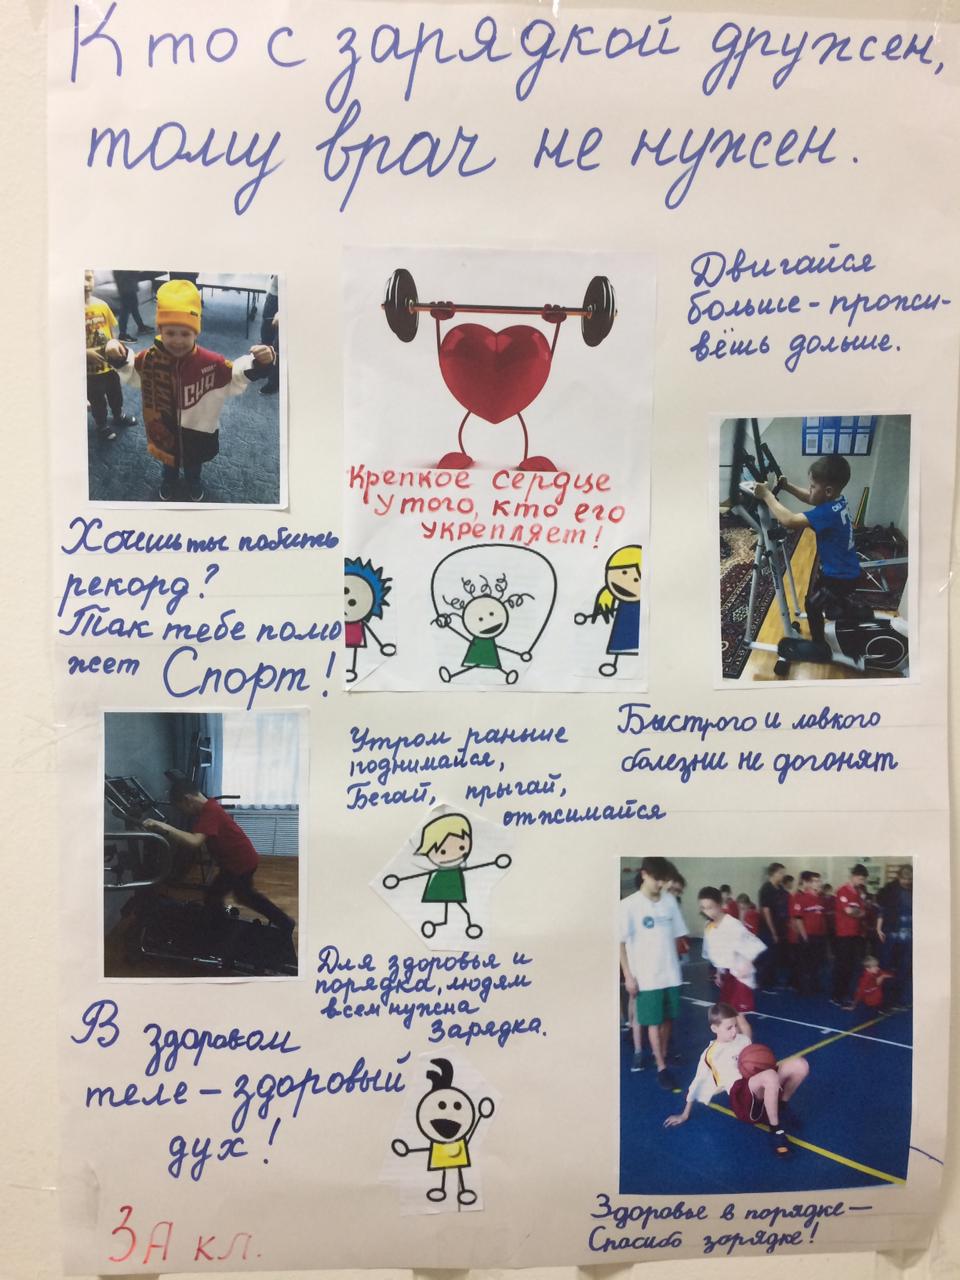 Кто с зарядкой дружен,
тому врач не нужен.
Двигайся
больше - прожи-
вёшь дольше.
Крепкое сердце
у того, кто его
укрепляет!
Хочешь ты побить
рекорд?
Так тебе помо
жет Спорт!
Быстрого и ловкого
болезни не догонят
Утром раньше
поднимайся,
Бегай, прыгай,
отжимайся
Для здоровья и
порядка, людям
всем нужна
Зарядка.
В здоровом
теле - здоровый
дух!
Здоровье в порядке -
Спасибо зарядке!
3А кл.